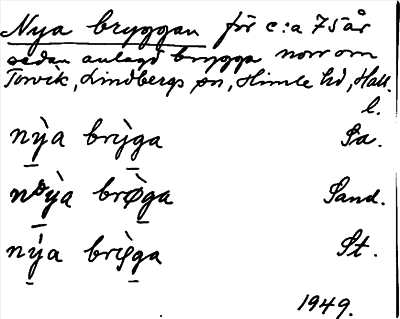 Nya bryggan för c:a 75 år
sedan anlagd brygga norr om
Torvik, Lindbergs sn, Himle hd, Hall.
l.
nỳa brỳga Sa.
nᵊỳa brø̀ga Sand.
nỳa brìga St.
1949.